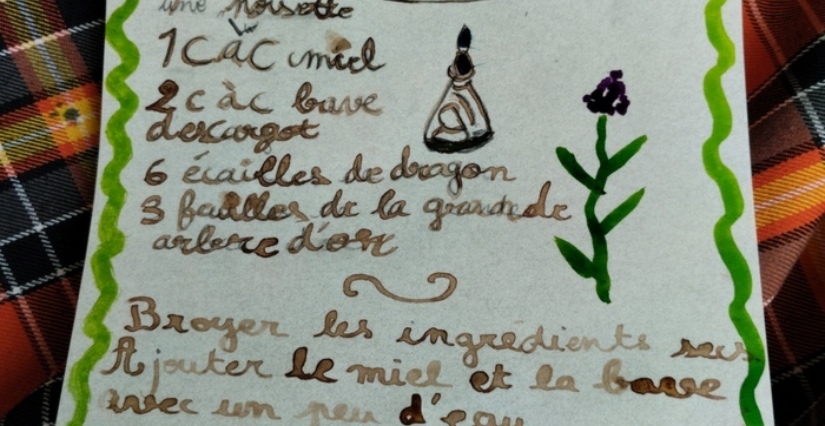 une noisette
1 c à c miel
2 c à c bave
d'escargot
6 écailles de dragon
3 feuilles de la grande
arbre d'or
Broyer les ingrédients secs
Ajouter le miel et la bave
avec un peu d'eau